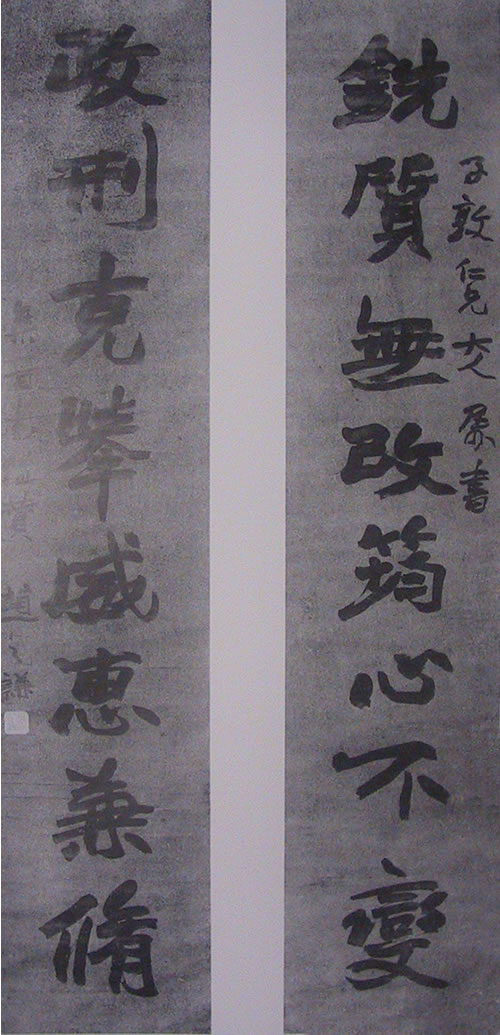 銑質無改筠心不變
子敦仁兄大人屬書
政刑克舉威惠兼脩
趙之謙